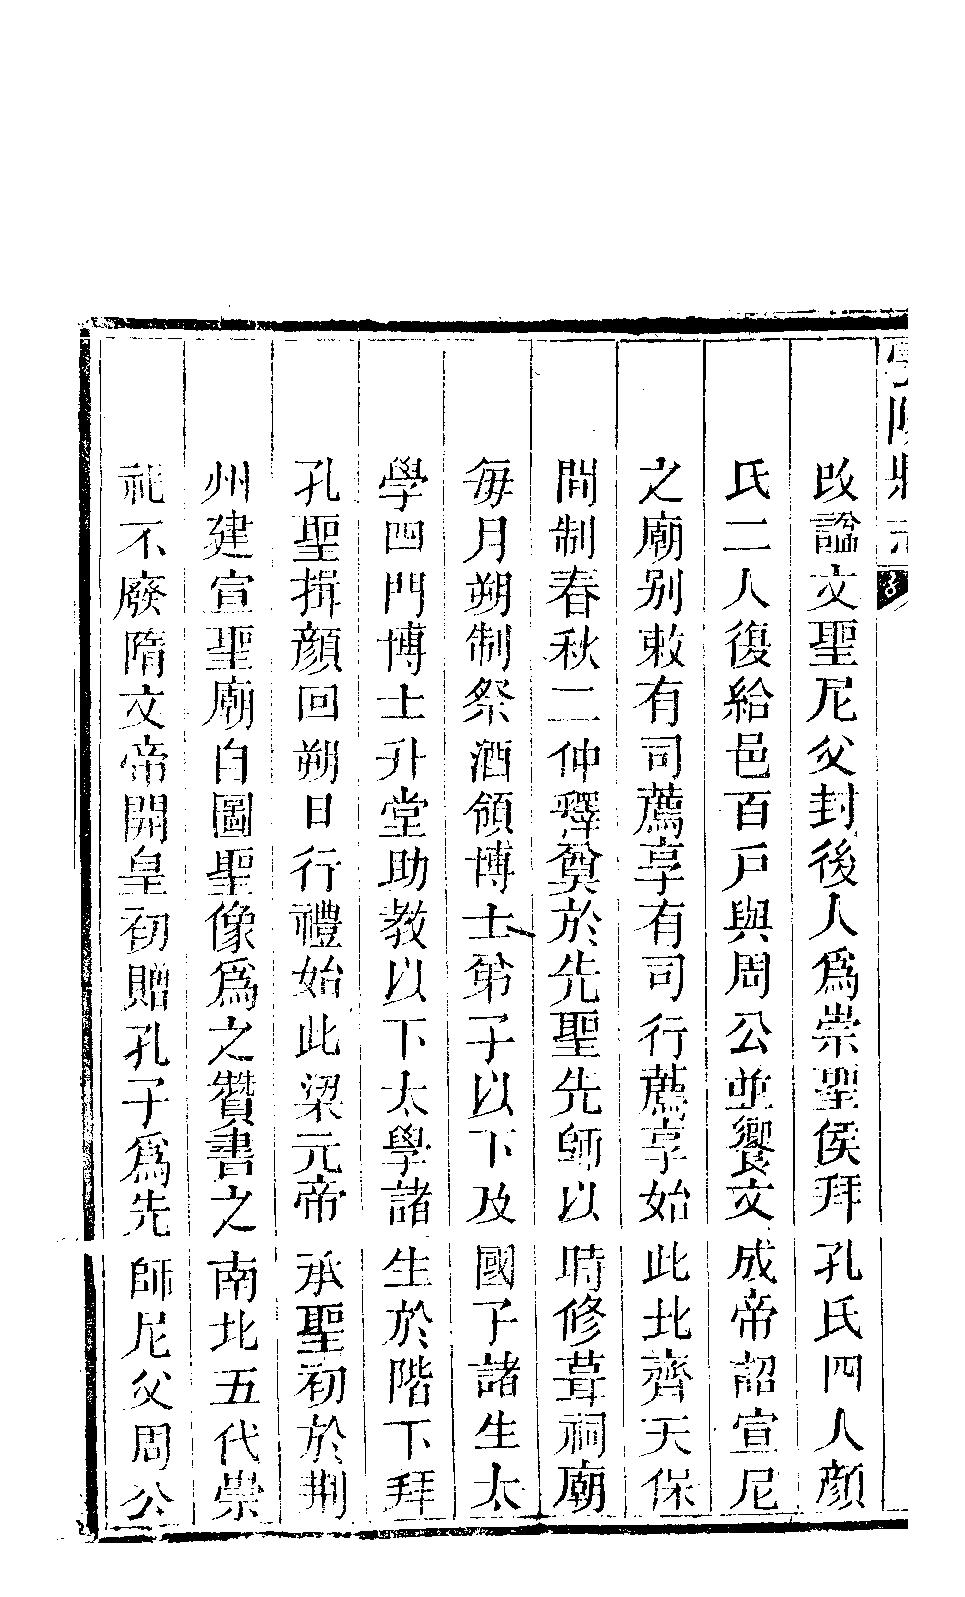 改謚文聖尼父封後人爲崇聖侯拜孔氏四人顔
氏二人復給邑百戸與周公並饗文成帝詔宣尼
之廟别敕有司薦享有司行薦享始此北齊天保
間制春秋二仲釋奠於先聖先師以時修葺祠廟
每月朔制祭酒領博士第子以下及國子諸生太
學四門博士升堂助教以下太學諸生於階下拜
孔聖揖顔回朔日行禮始此梁元帝承聖初於荆
州建宣聖廟自圖聖像爲之贊書之南北五代崇
祀不廢隋文帝開皇初贈孔子爲先師尼父周公